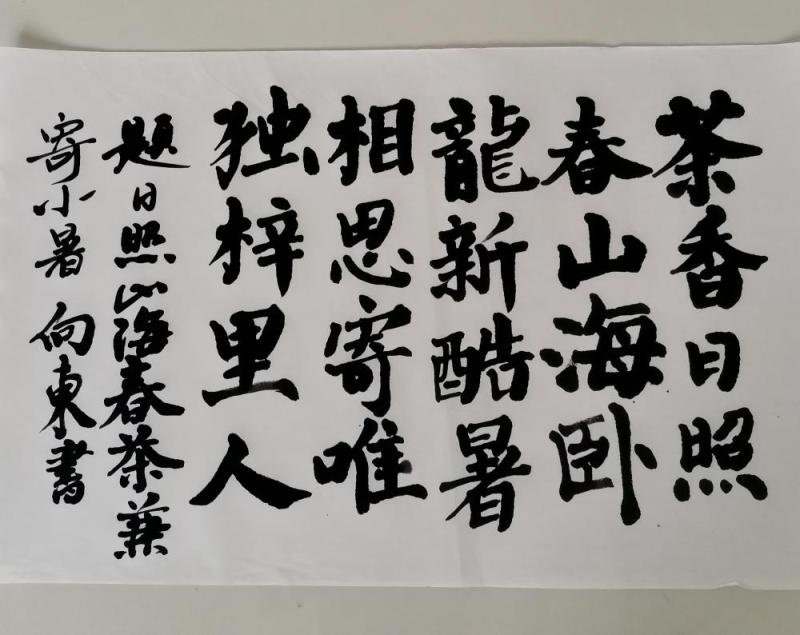 茶香日照
春山海卧
龍新酷暑
相思寄唯
独梓里人
题日照山海春茶兼
寄小暑 向東書